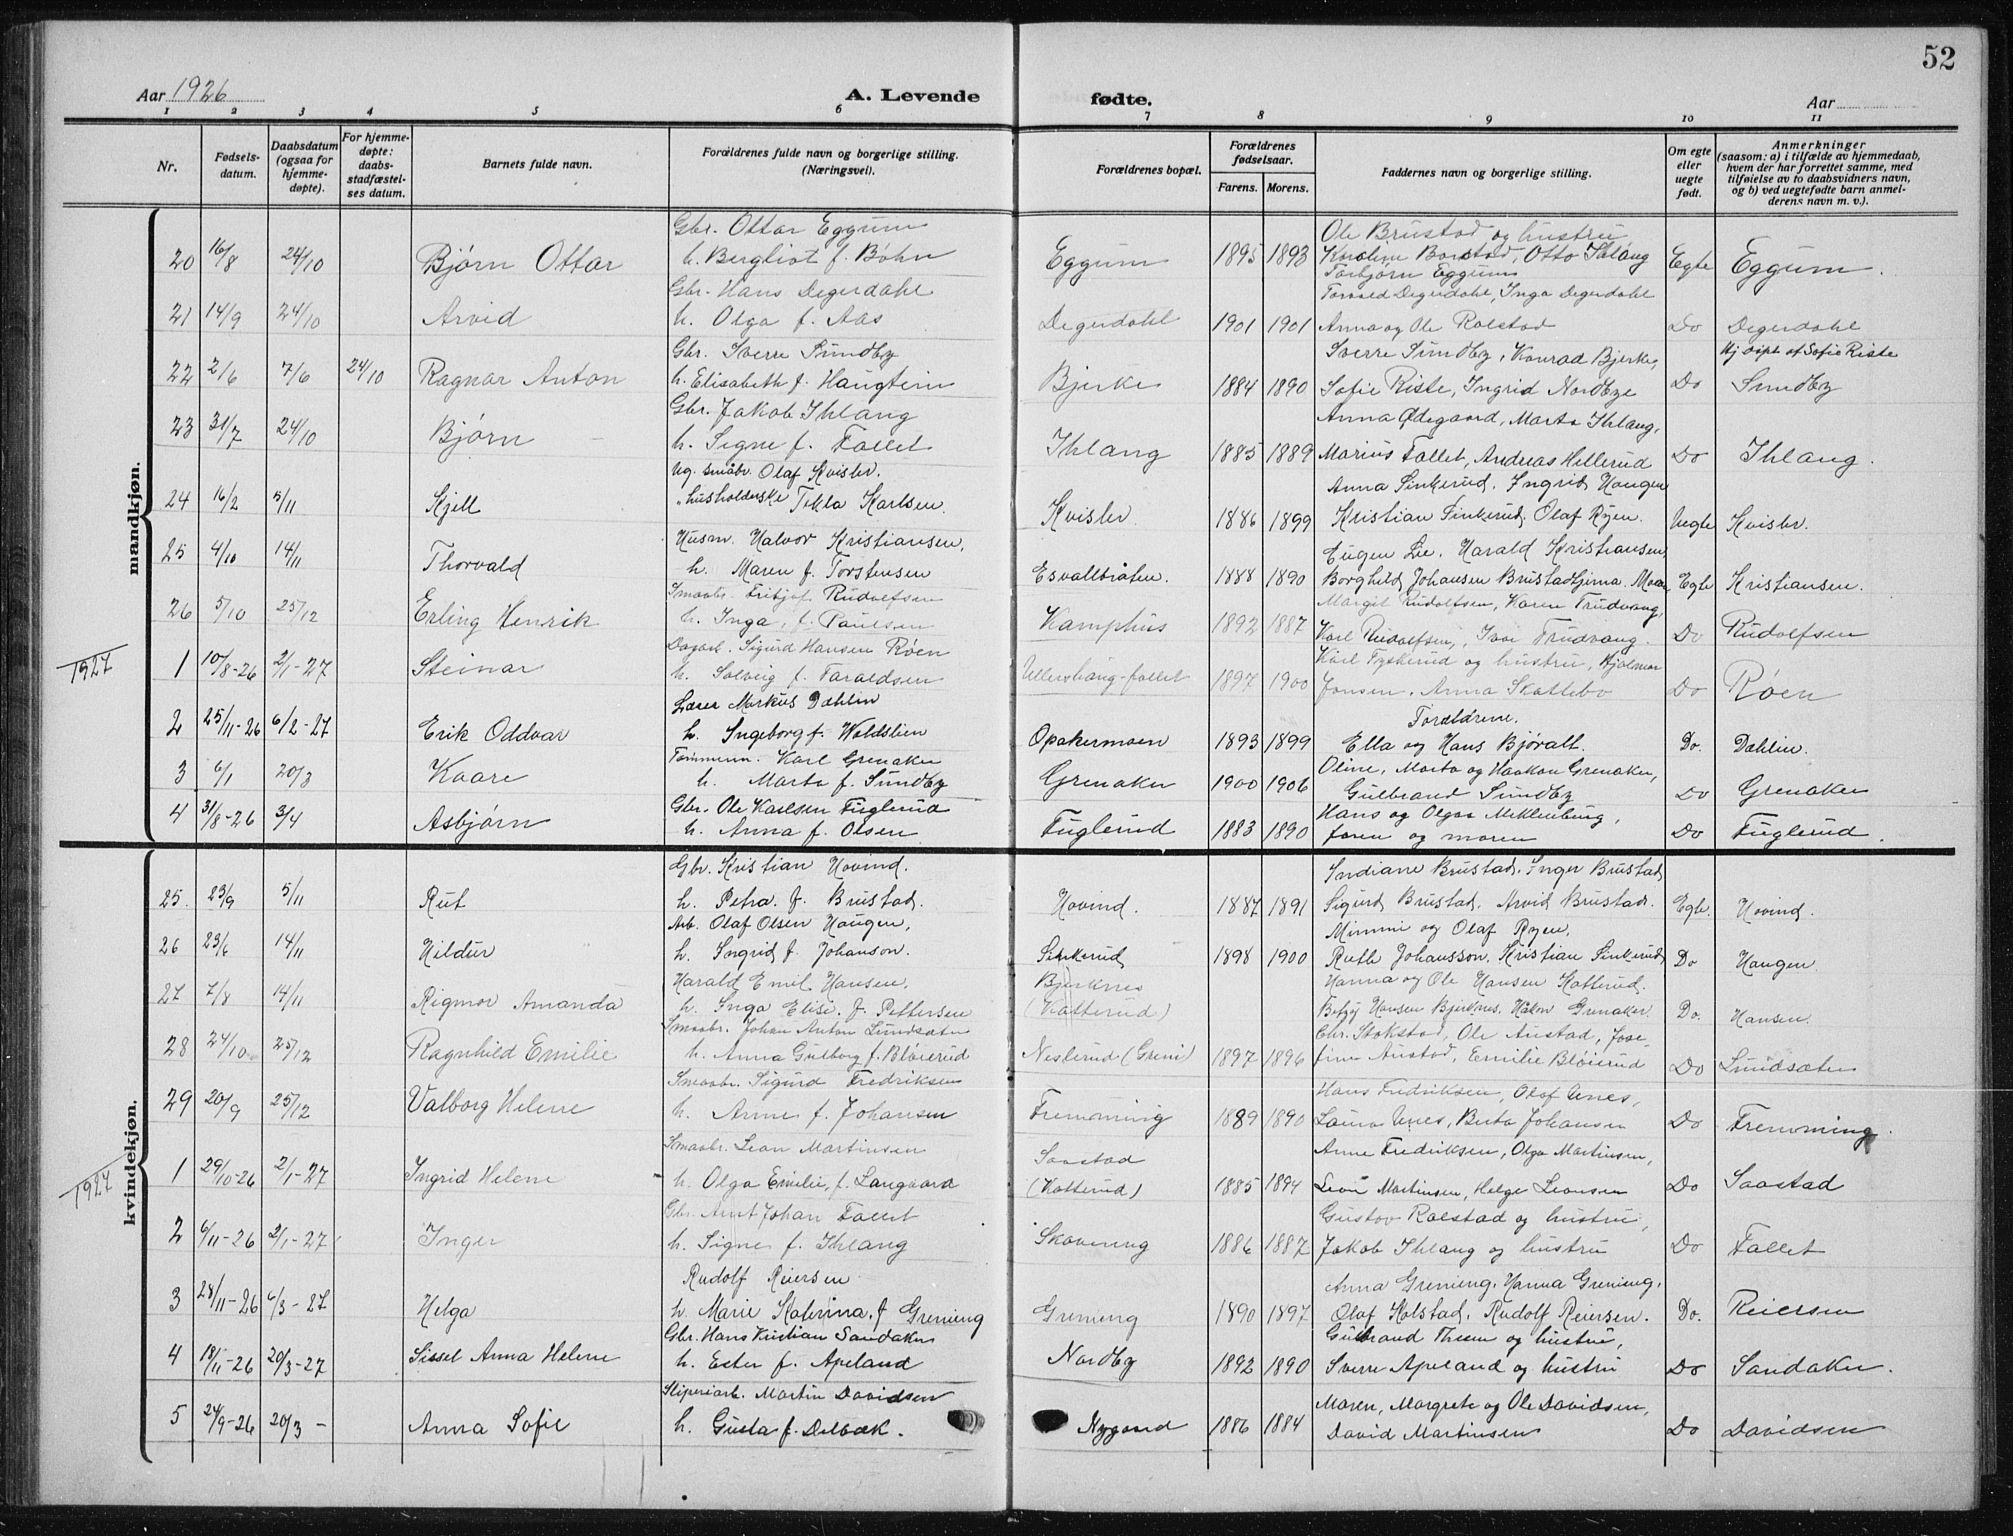 52
Aar 1926
A. Levende
fødte.
Aar
1 2 3 4 5 6 7 8 9 10 11
Nr.
Fødsels-
datum.
Daabsdatum
(ogsaa for
hjemme-
døpte).
For hjemme-
døpte:
daabs-
stadfæstel-
ses datum.
Barnets fulde navn.
Forældrenes fulde navn og borgerlige stilling.
(Næringsvei).
Forældrenes bopæl.
Forældrenes
fødselsaar.
Farens. Morens.
Faddernes navn og borgerlige stilling.
Om egte
eller
uegte
født.
Anmerkninger
(saasom: a) i tilfælde av hjemmedaab,
hvem der har forrettet samme, med
tilføielse av to daabsvidners navn,
og b) ved uegtefødte barn anmel-
derens navn m. v.).
mandkjøn.
Gbr. Ottar Eggum
Ole Brustad og hustru
20 16/8 24/10 Bjørn Ottar h. Bergliot f. Bøhn Eggum 1895 1893 Karoline Borstad, Otto Ihlang Egte Eggum.
Torbjørn Eggum
Gbr. Hans Degerdahl
Torvald Degerdahl, Inga Degerdahl
21 14/9 24/10 Arvid h. Olga f. Aas Degerdahl 1901 1901 Anna og Ole Rolstad Do Degerdahl
Gbr. Sverre Sundby
Sverre Sundby, Konrad Bjerke,
Hj. døpt af Sofie Riste
22 2/6 7/6 24/10 Ragnar Anton h. Elisabeth f. Haugtein Bjerke 1884 1890 Sofie Riste, Ingrid Nordbye Do Sundby
Gbr. Jakob Ihlang
Anna Ødegaard, Marta Ihlang,
23 31/7 24/10 Bjørn h. Signe f. Fallet Ihlang 1885 1889 Marius Fallet, Andreas Hillerud Do Ihlang.
Ug. småbr. Olaf Kvisler.
Anna Sinkerud. Ingrid Haugen
24 16/2 5/11 Kjell " husholderske Tekla Karlsen. Kvisler. 1886 1899 Kristian Sinkerud. Olaf Ryen. Uegte Kvisler.
Husm. Halvor Kristiansen,
Eugen Lie. Harald Kristiansen
25 4/10 14/11 Thorvald h. Maren f. Torstensen Esvallbråten. 1888 1890 Borghild Johansen Egte Kristiansen.
Smaabr. Fritjof Rudolfsen
Margit Rudolfsen, Karen Trudvang,
26 5/10 25/12 Erling Henrik h. Inga, f. Paulsen Kamphus 1892 1887 Karl Rudolfsen, Ivar Trudvang. Do Rudolfsen
Dagarb. Sigurd Hansen Røen
Karl Fyskerud og hustru, Hjalmar
1927 1 10/8-26 2/1-27 Steinar h. Solveig f. Faraldsen Ullershang-fallet 1897 1900 Jensen. Anna Skattebo Do Røen
Lærer Markus Dæhlin
Forældrene.
2 25/11-26 6/2-27 Erik Oddvar h. Ingeborg f. Woldslien Opakermoen 1893 1899 Ella og Hans Bjøralt. Do. Dæhlin.
Tømmerm. Karl Grenaker
Oline, Marta og Haakon Grenaker,
3 6/1 20/3 Kaare h. Marta f. Sundby Grenaker 1900 1906 Gulbrand Sundby Do Grenaker
Gbr. Ole Karlsen Fuglerud
Hans og Olga Meklenburg,
4 31/8-26 3/4 Asbjørn h. Anna f. Olsen Fuglerud 1883 1890 faren og moren Do Fuglerud.
kvindekjøn.
Gbr. Kristian Hovind.
Indiane Brustad. Inger Brustad
25. 23/9 5/11 Rut h. Petra f. Brustad. Hovind. 1887 1891 Sigurd Brustad. Arvid Brustad. Egte. Hovind.
Arb. Olaf Olsen Haugen,
Mimmi og Olaf Ryen,
26 23/6 14/11 Hildur h. Ingrid f. Johanson. Sinkerud 1898 1900 Ruth Johansson, Kristian Sinkerud Do Haugen
Harald Emil Hansen,
Bjerknes
Hanna og Ole Hansen Katterud.
27 7/8 14/11 Rigmor Amanda h. Inga Elise f. Pettersen (Katterud) Betzy Hansen Bjerknes. Håkon Grenaker Do. Hansen.
Smaabr. Johan Anton Lundsæter
Chr. Stokstad, Ole Austad, Jose-
28 24/10 25/12 Ragnhild Emilie h. Anna Gulborg f. Bløierud Neslerud (Greni) 1897 1896 fine Austad, Emilie Bløierud Do Lundsæter
Smaabr. Sigurd Fredriksen
Hans Fredriksen, Olaf Unes,
29 20/9 25/12 Valborg Helene h. Anne f. Johansen Fremming 1889 1890 Laura Unes, Berta Johansen Do Fremming.
Smaabr. Leon Martinsen
Saastad
Anne Fredriksen, Olga Martinsen,
1927 1 29/10-26 2/1-27 Ingrid Helene h. Olga Emilie, f. Langaard (Katterud) 1885 1894 Leon Martinsen, Helge Leonsen Do Saastad
Gbr. Arnt Johan Fallet
Gustav Rolstad og hustru,
2 6/11-26 2/1-27 Inger h. Signe f. Ihlang Skovening 1886 1887 Jakob Ihlang og hustru Do Fallet
Rudolf Reiersen
Anna Grenieng, Hanna Grenieng,
3 28/11-26 6/3-27 Helga h. Marie Katerina f. Grenieng Grenieng 1890 1897 Olaf Holstad, Rudolf Reiersen. Do. Reiersen
Gbr. Hans Kristian Sandaker
Gulbrand Theen og hustru,
4 18/11-26 20/3-27 Sissel Anna Helene h. Ester f. Apeland Nordby 1892 1890 Sverre Apeland og hustru Do Sandaker.
Sliperiarb. Martin Davidsen
Maren, Margrete og Ole Davidsen,
5 24/9-26 20/3 - Anna Sofie h. Gusta f. Delbæk. Nygaard 1886 1884 David Martinsen Do Davidsen